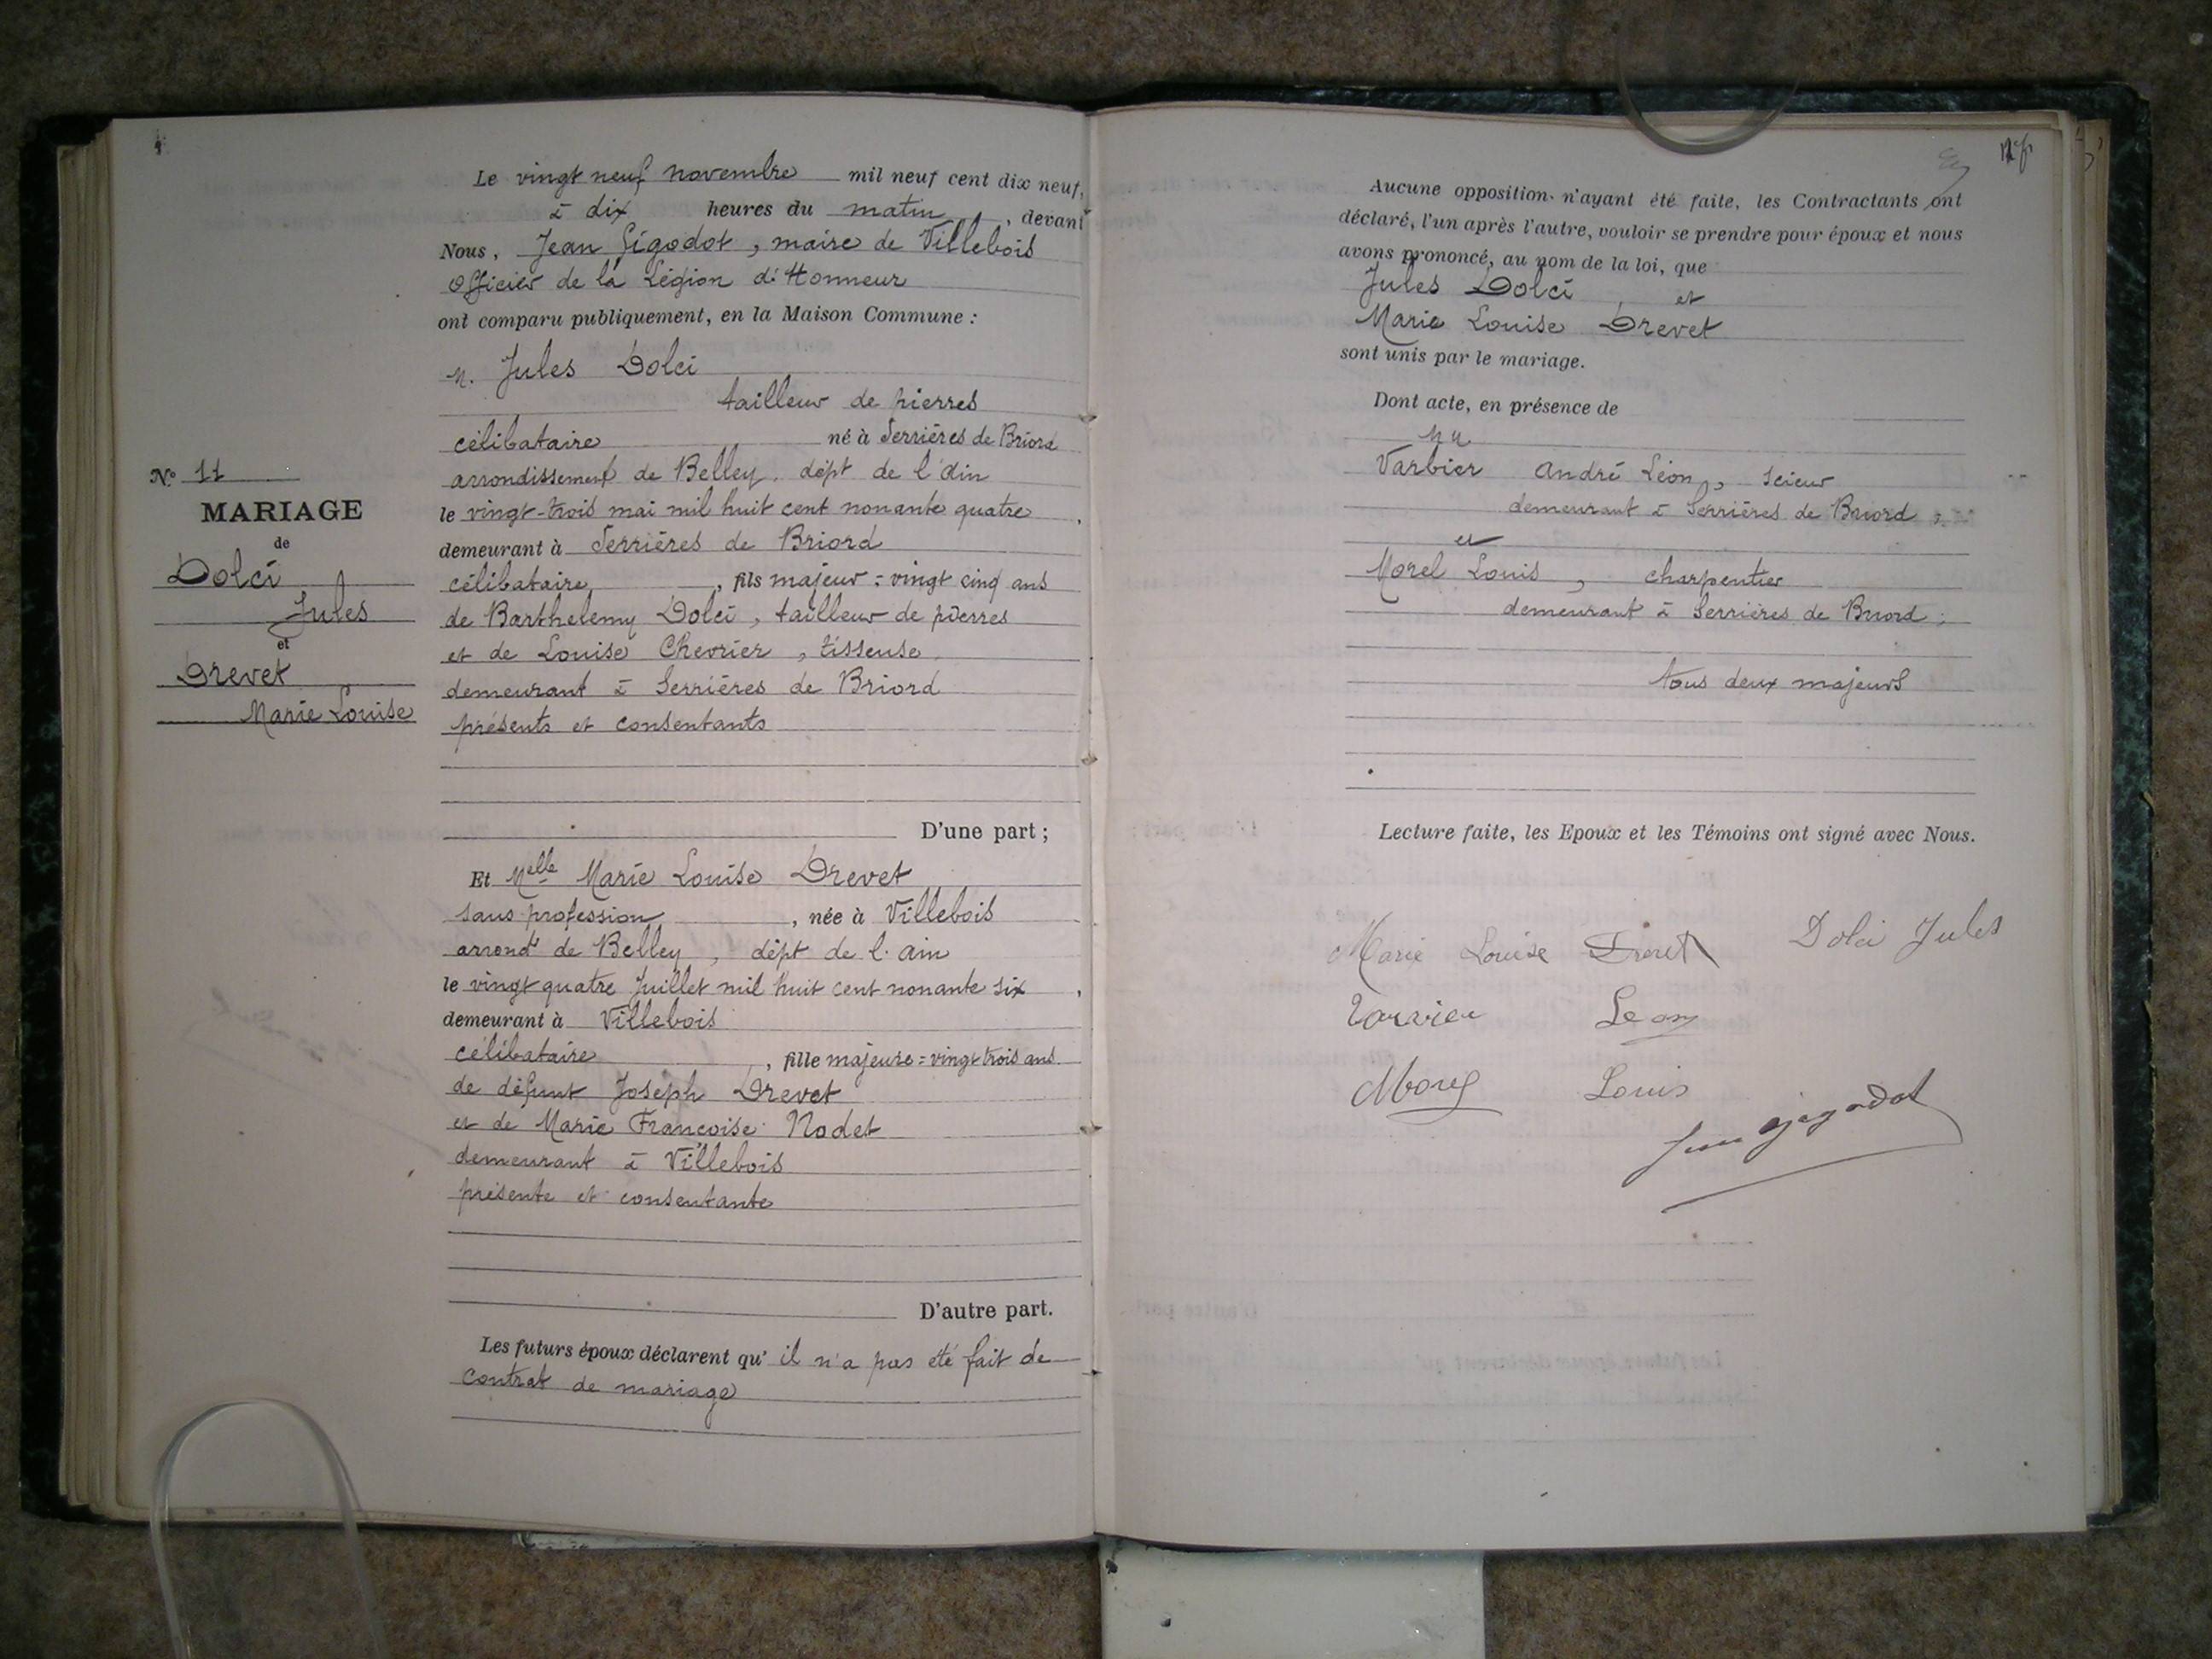 Le vingt neuf novembre mil neuf cent dix neuf,
à dix heures du matin, devant
Nous, Jean Gigodot, maire de Villebois
Officier de la Légion d'Honneur
ont comparu publiquement, en la Maison Commune :
M. Jules Dolci
tailleur de pierres
célibataire né à Serrières de Briord
arrondissement de Belley. dépt de l'ain
le vingt-trois mai mil huit cent nonante quatre,
demeurant à Serrières de Briord
célibataire, fils majeur = vingt cinq ans
de Barthelemy Dolci, tailleur de pierres
et de Louise Chevrier, tisseuse,
demeurant à Serrières de Briord
présents et consentants
D'une part ;
N° 11
MARIAGE
de
Dolci
Jules
et
Drevet
Marie Louise
Et Melle Marie Louise Drevet
sans profession, née à Villebois
arrondt de Belley, dépt de l'ain
le vingt quatre Juillet mil huit cent nonante six,
demeurant à Villebois
célibataire, fille majeure = vingt trois ans
de défunt Joseph Drevet
et de Marie Françoise Nodet
demeurant à Villebois
présente et consentante
D'autre part.
Les futurs époux déclarent qu'il n'a pas été fait de
contrat de mariage
Aucune opposition n'ayant été faite, les Contractants ont
déclaré, l'un après l'autre, vouloir se prendre pour époux et nous
avons prononcé, au nom de la loi, que
Jules Dolci et
Marie Louise Drevet
sont unis par le mariage.
Dont acte, en présence de
MM
Varbier André Léon, scieur
demeurant à Serrières de Briord ;
et
Morel Louis, charpentier
demeurant à Serrières de Briord ;
tous deux majeurs
Lecture faite, les Epoux et les Témoins ont signé avec Nous.
Marie Louise Drevet Dolci Jules
Leon
Morel Louis
Jean Gigodot